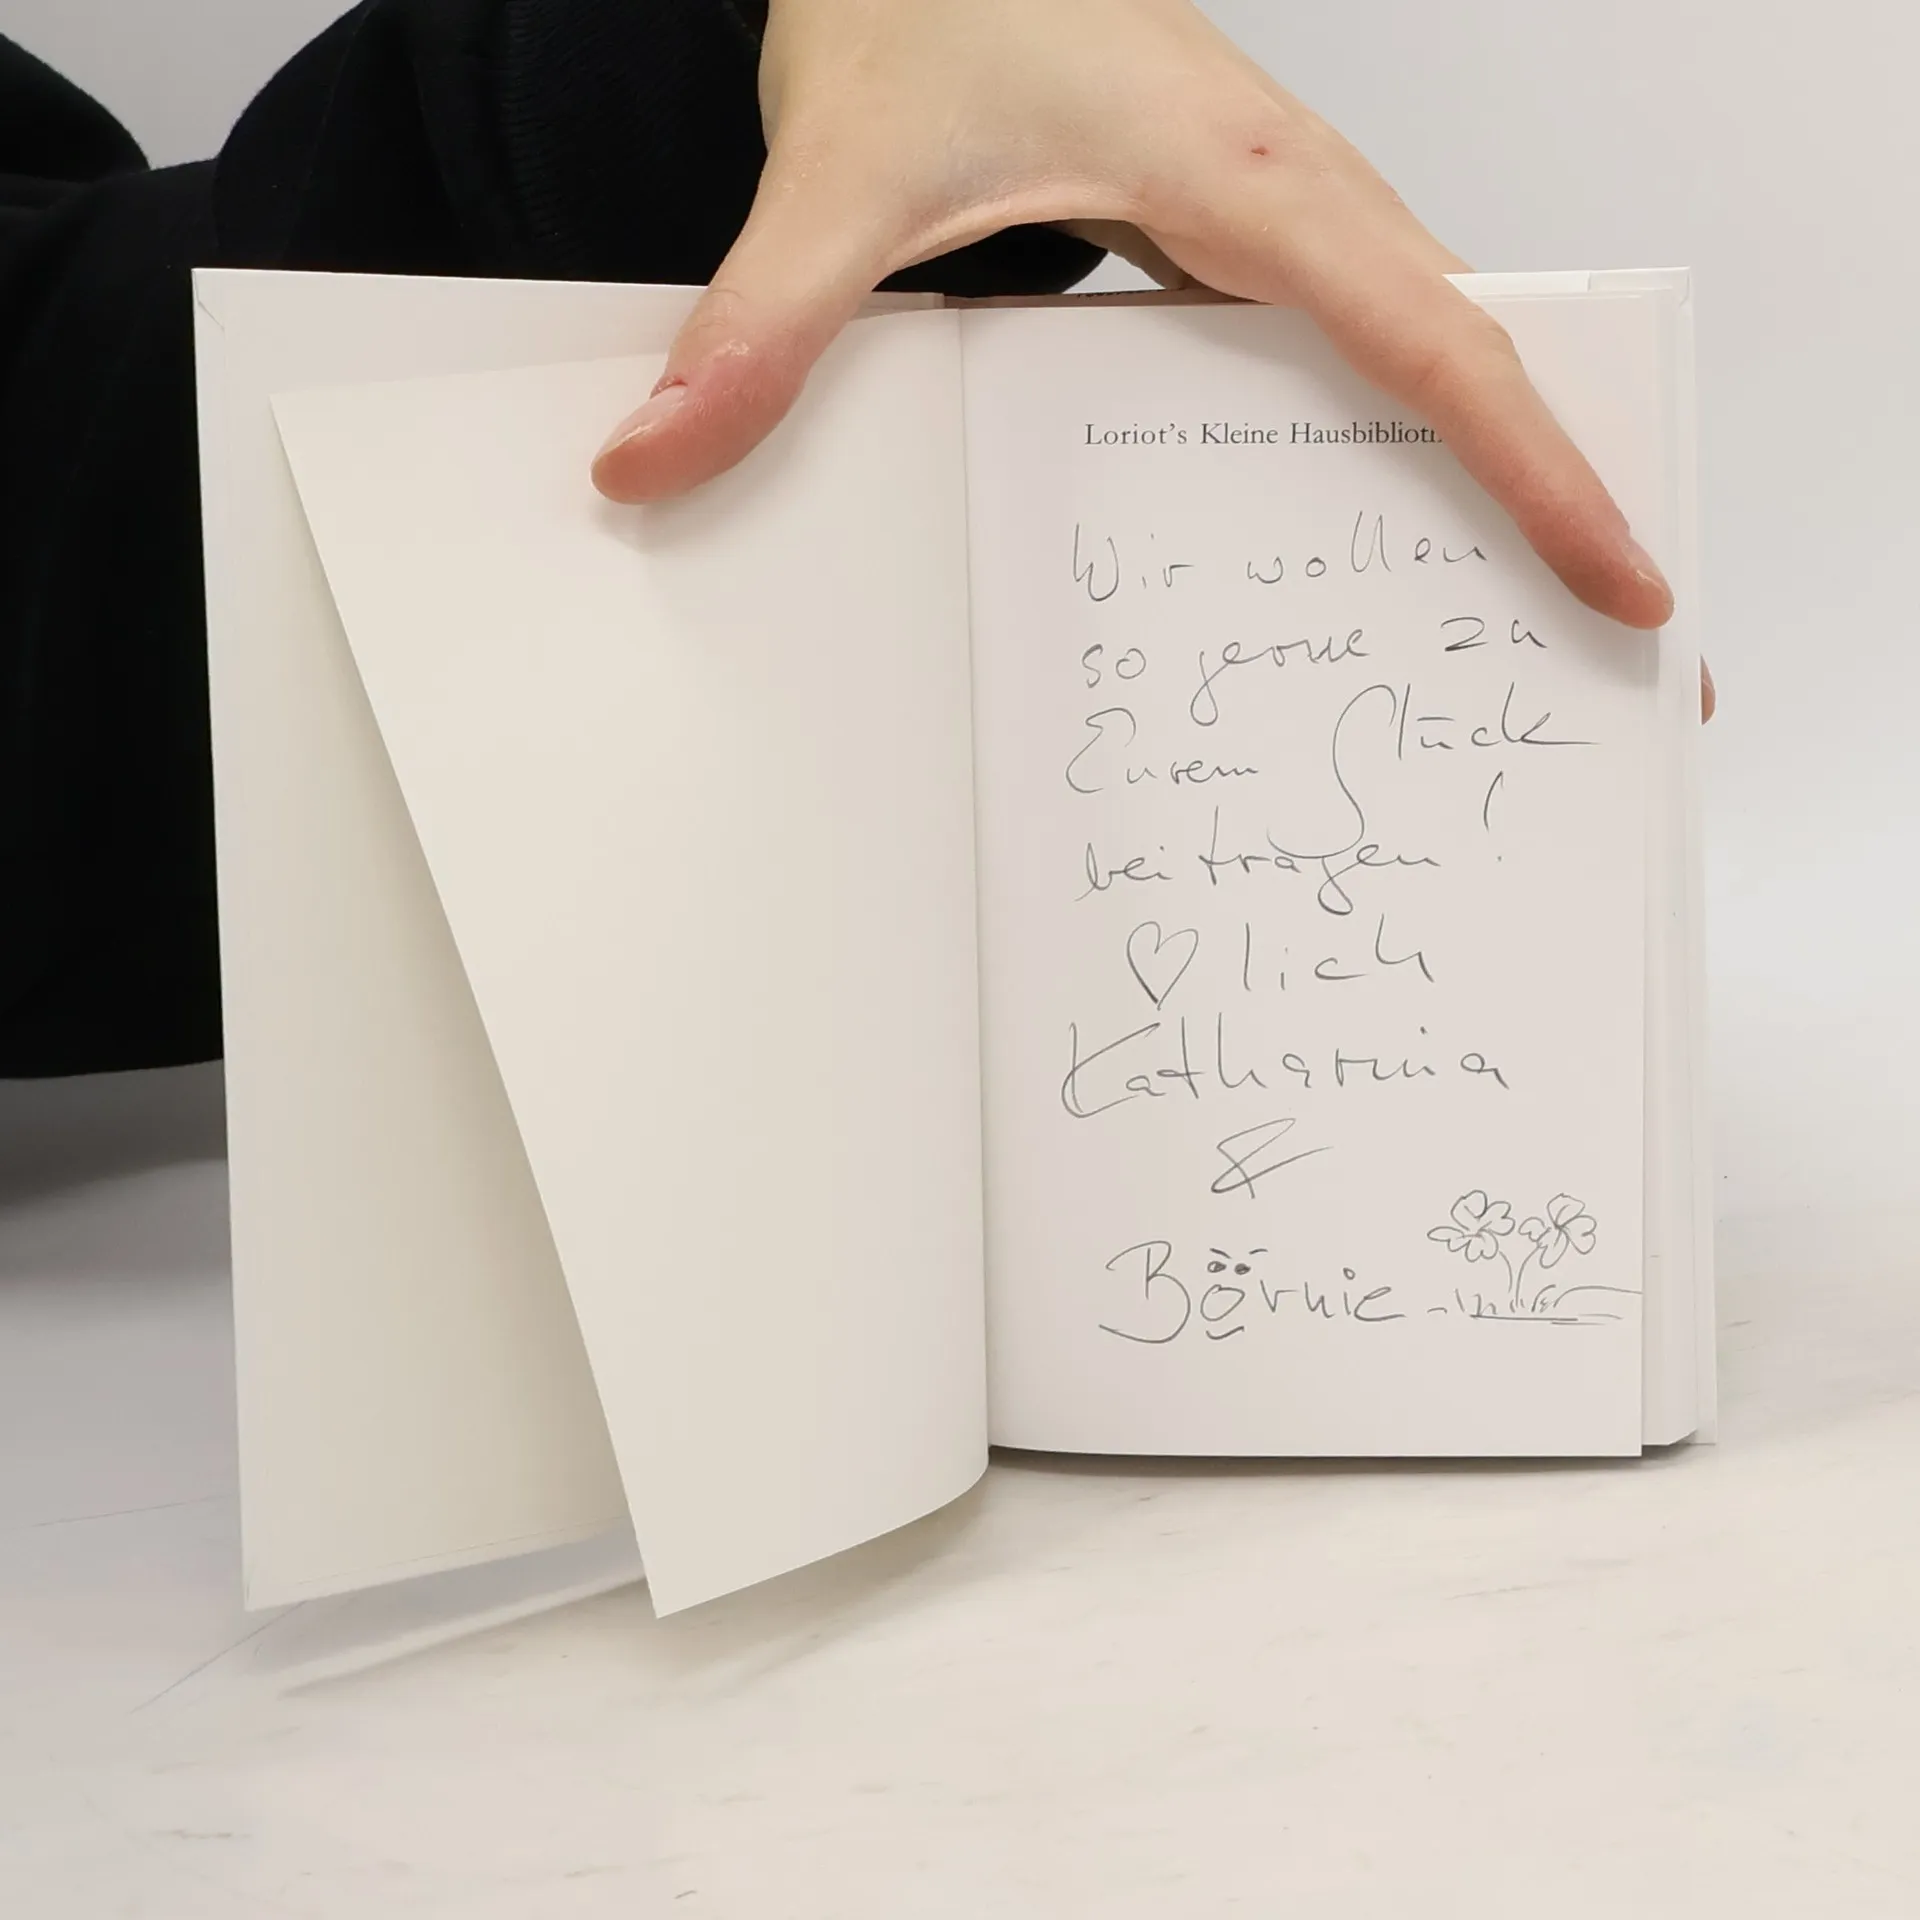 Loriot's Kleine
Wir wollen
so gerne zu
Eurem Stück
beitragen!
♡lich
Katharina
&
Börnie